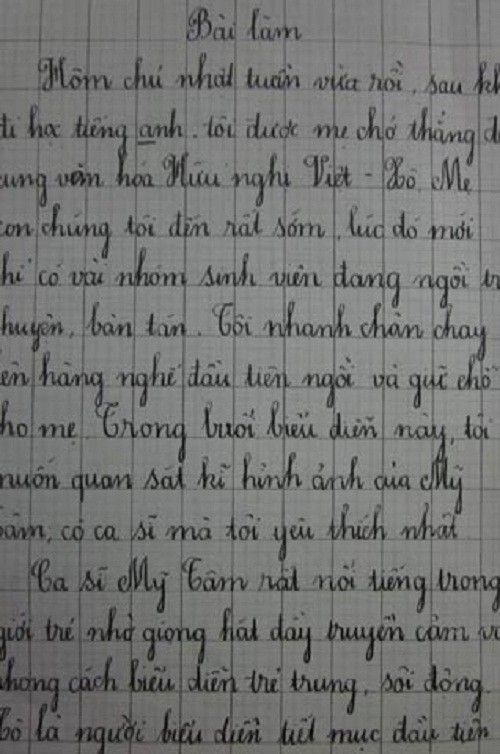 Bài làm
Hôm chủ nhật tuần vừa rồi, sau kh
đi học tiếng anh, tôi được mẹ chở thẳng đ
cung văn hóa Hữu nghị Việt - Xô. Mẹ
con chúng tôi đến rất sớm, lúc đó mới
hỉ có vài nhóm sinh viên đang ngồi tr
huyện, bàn tán. Tôi nhanh chân chạy
ên hàng nghế đầu tiên ngồi và giữ chỗ
ho mẹ. Trong buổi biểu diễn này, tôi
muốn quan sát kĩ hình ảnh của Mỹ
Tâm, cô ca sĩ mà tôi yêu thích nhất
Ca sĩ Mỹ Tâm rất nổi tiếng trong
giới trẻ nhờ giọng hát đầy truyền cảm và
phong cách biểu diễn trẻ trung, sôi động.
Cô là người biểu diễn tiết mục đầu tiên